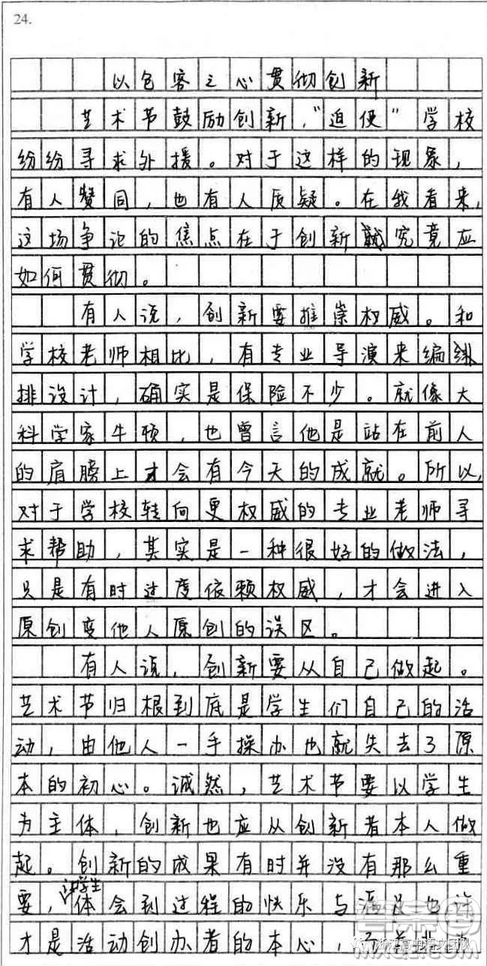 24.
以包容之心贯彻创新
艺术节鼓励创新，“迫使”学校
纷纷寻求外援。对于这样的现象，
有人赞同，也有人质疑。在我看来，
这场争论的焦点在于创新究竟应
如何贯彻。
有人说，创新要推崇权威。和
学校老师相比，有专业导演来编排
排设计，确实是保险不少。就像大
科学家牛顿，也曾言他是站在前人
的肩膀上才会有今天的成就。所以，
对于学校转向更权威的专业老师寻
求帮助，其实是一种很好的做法，
只是有时过度依赖权威，才会进入
原创变他人原创的误区。
有人说，创新要从自己做起。
艺术节归根到底是学生们自己的活
动，由他人一手操办也就失去了原
本的初心。诚然，艺术节要以学生
为主体，创新也应从创新者本人做
起。创新的成果有时并没有那么重
要，让学生体会到过程的快乐与满足也许
才是活动创办者的本心，